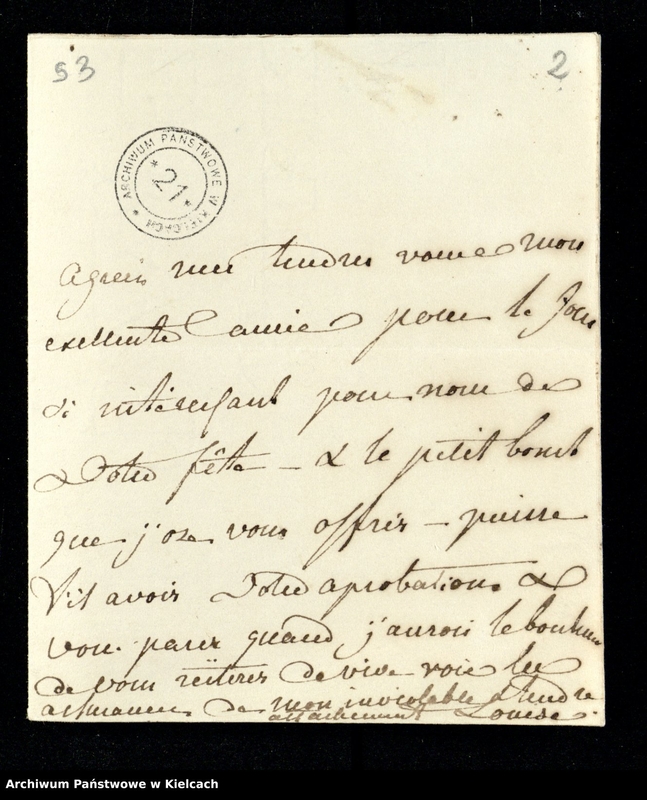 53 2
ARCHIWUM PAŃSTWOWE W KIELCACH
* 21 *
agreés mes tendres voeux mon
exellente amie pour le jour
si intéressant pour nous de
Votre fête – & le petit bonet
que j'ose vous offrir – puisse
t'il avoir Votre aprobation &
vous parer quand j'aurois le bonheur
de vous reïterer de vive voie les
assurances de mon inviolable & tendre
attachement Louise.
Archiwum Państwowe w Kielcach